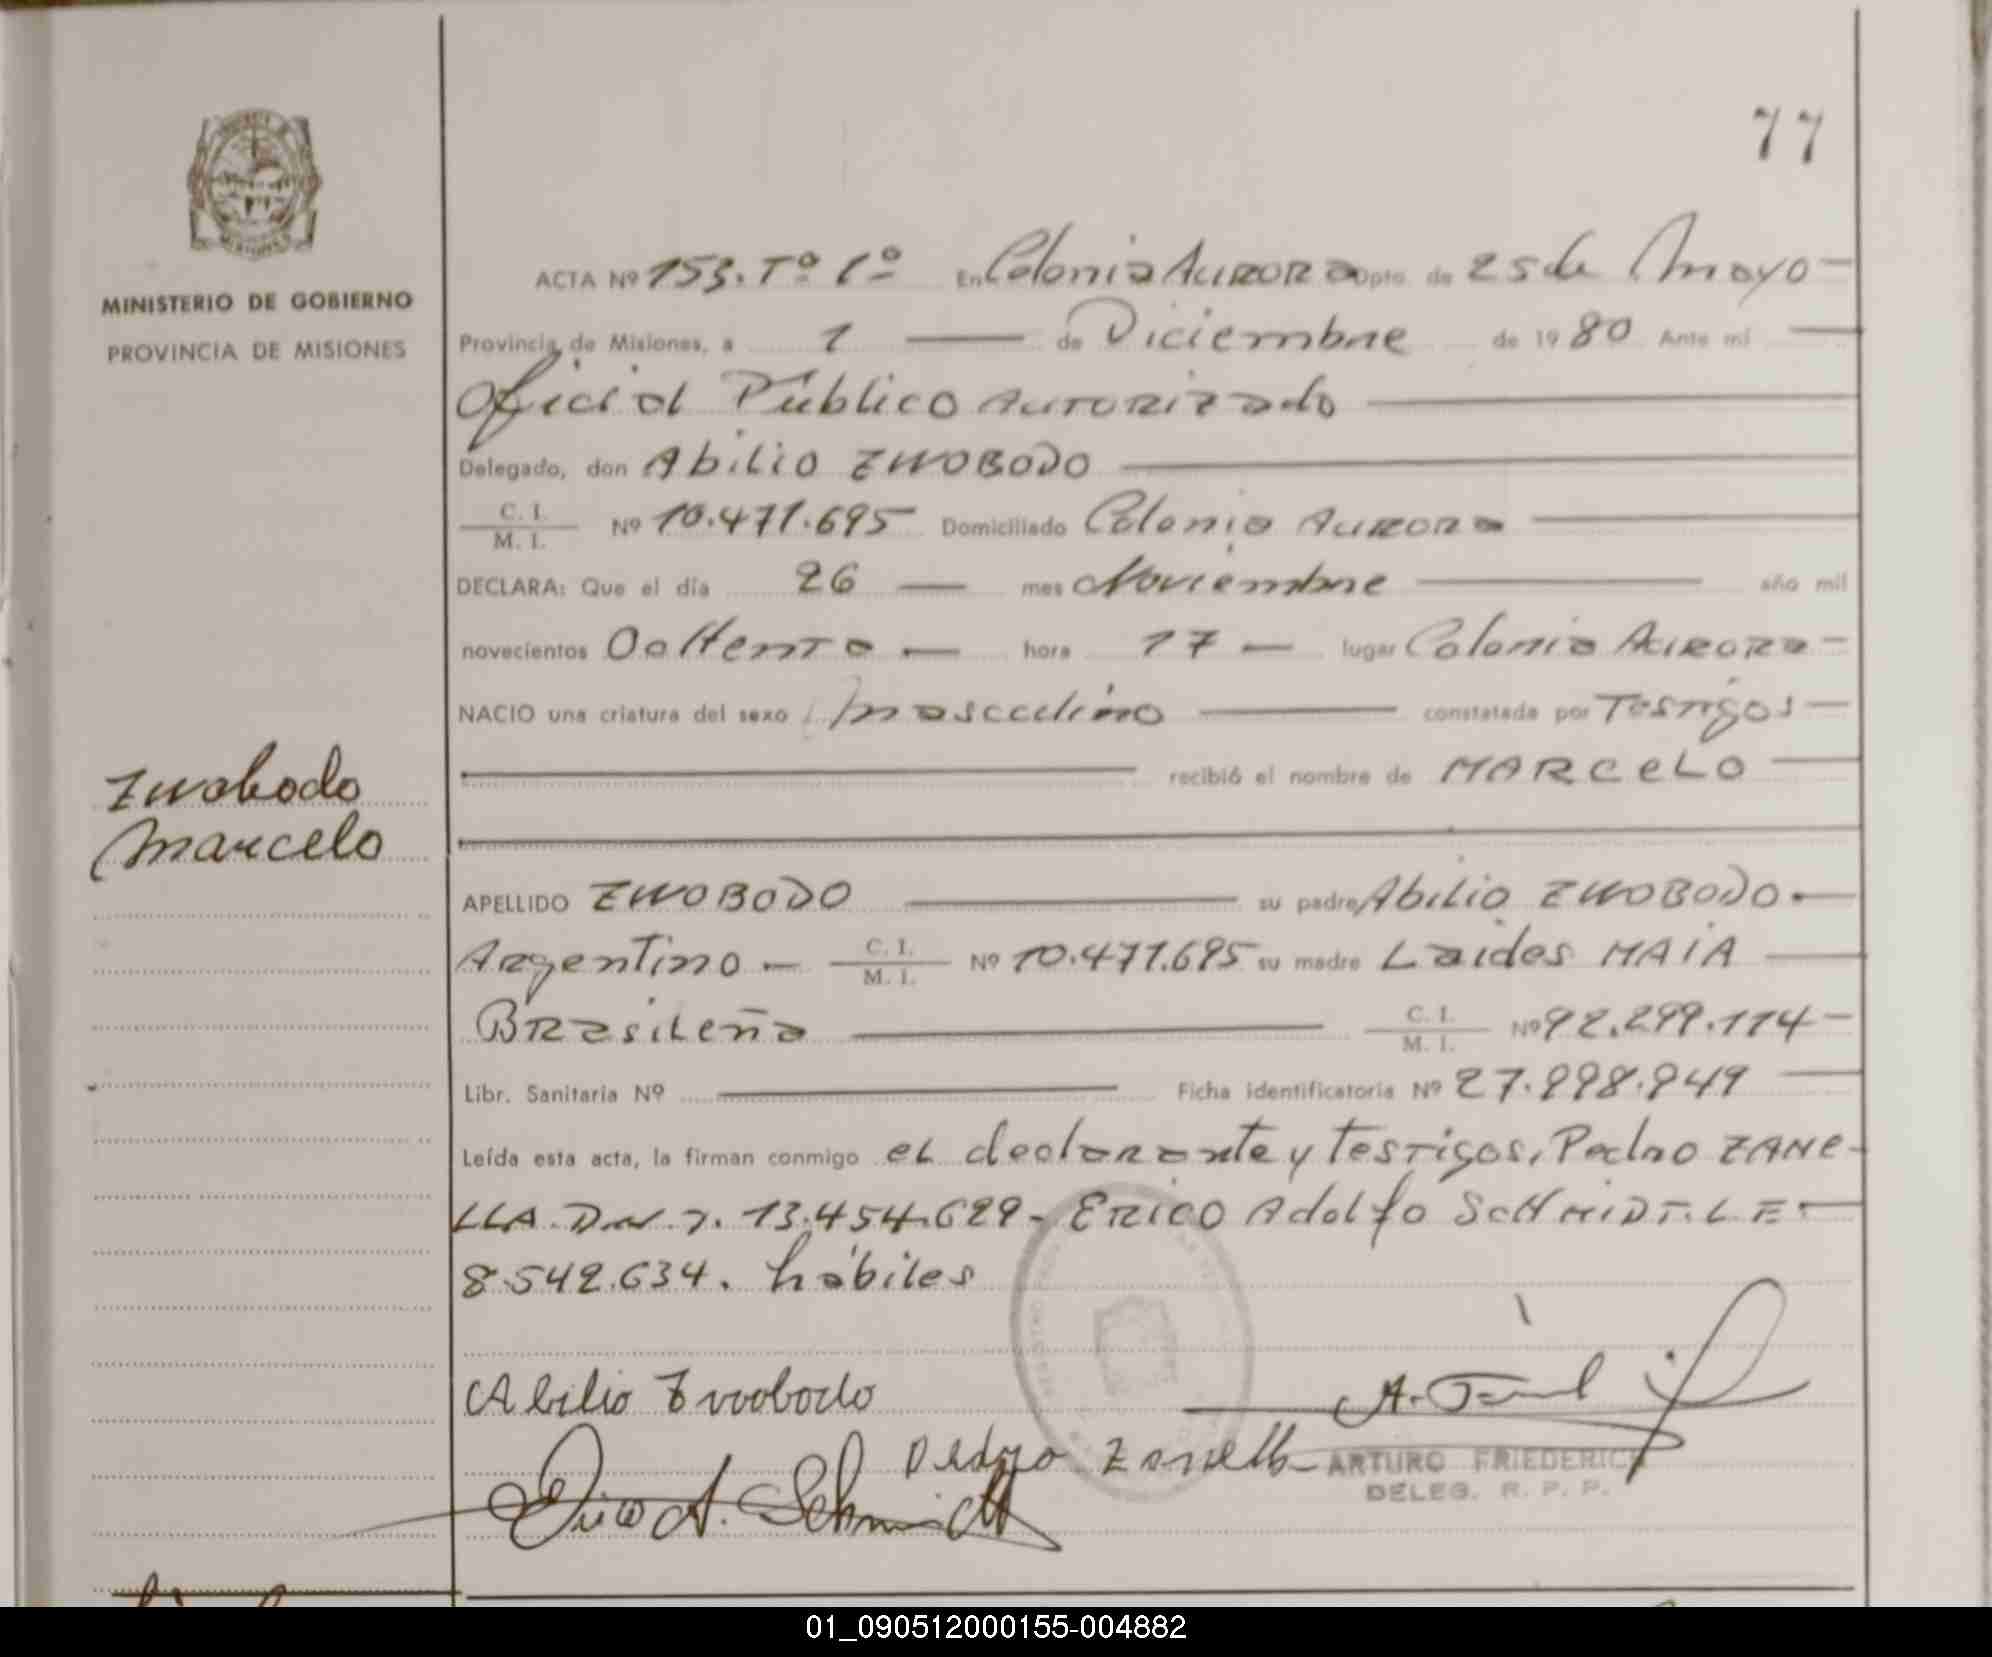 77
MINISTERIO DE GOBIERNO
PROVINCIA DE MISIONES
ACTA Nº 153. Tº 1º En Colonia Aurora Dpto. de 25 de Mayo
Provincia de Misiones, a 1 de Diciembre de 1980 Ante mí
Oficial Público Autorizado
Delegado, don Abilio ZWOBODO
C. I.
M. I. Nº 10.471.695 Domiciliado Colonia Aurora
DECLARA: Que el día 26 mes Noviembre año mil
novecientos Ochenta hora 17 lugar Colonia Aurora
NACIO una criatura del sexo Masculino constatada por Testigos
recibió el nombre de MARCELO
Zwobodo
Marcelo
APELLIDO ZWOBODO su padre Abilio ZWOBODO
Argentino C. I. M. I. Nº 10.471.695 su madre Laides MAIA
Brasileña C. I. M. I. Nº 92.299.114
Libr. Sanitaria Nº Ficha identificatoria Nº 27.998.949
Leída esta acta, la firman conmigo el declarante y testigos, Pedro ZANE-
LLA. 13.454.629 - Erico Adolfo SCHMIDT. L E
8.542.634. hábiles
Abilio Zwobodo
Pedro Zanella
Erico A. Schmidt
ARTURO FRIEDERICH
DELEG. R. P. P.
01_090512000155-004882